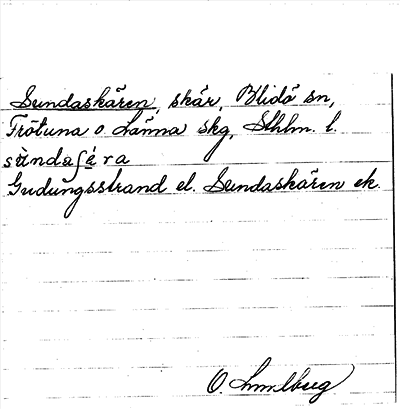 Sundaskären, skär, Blidö sn,
Frötuna o. Länna skg, Sthlm. l.
sùndaʃé̱ra
Gudungsstrand el. Sundaskären ek.
O.